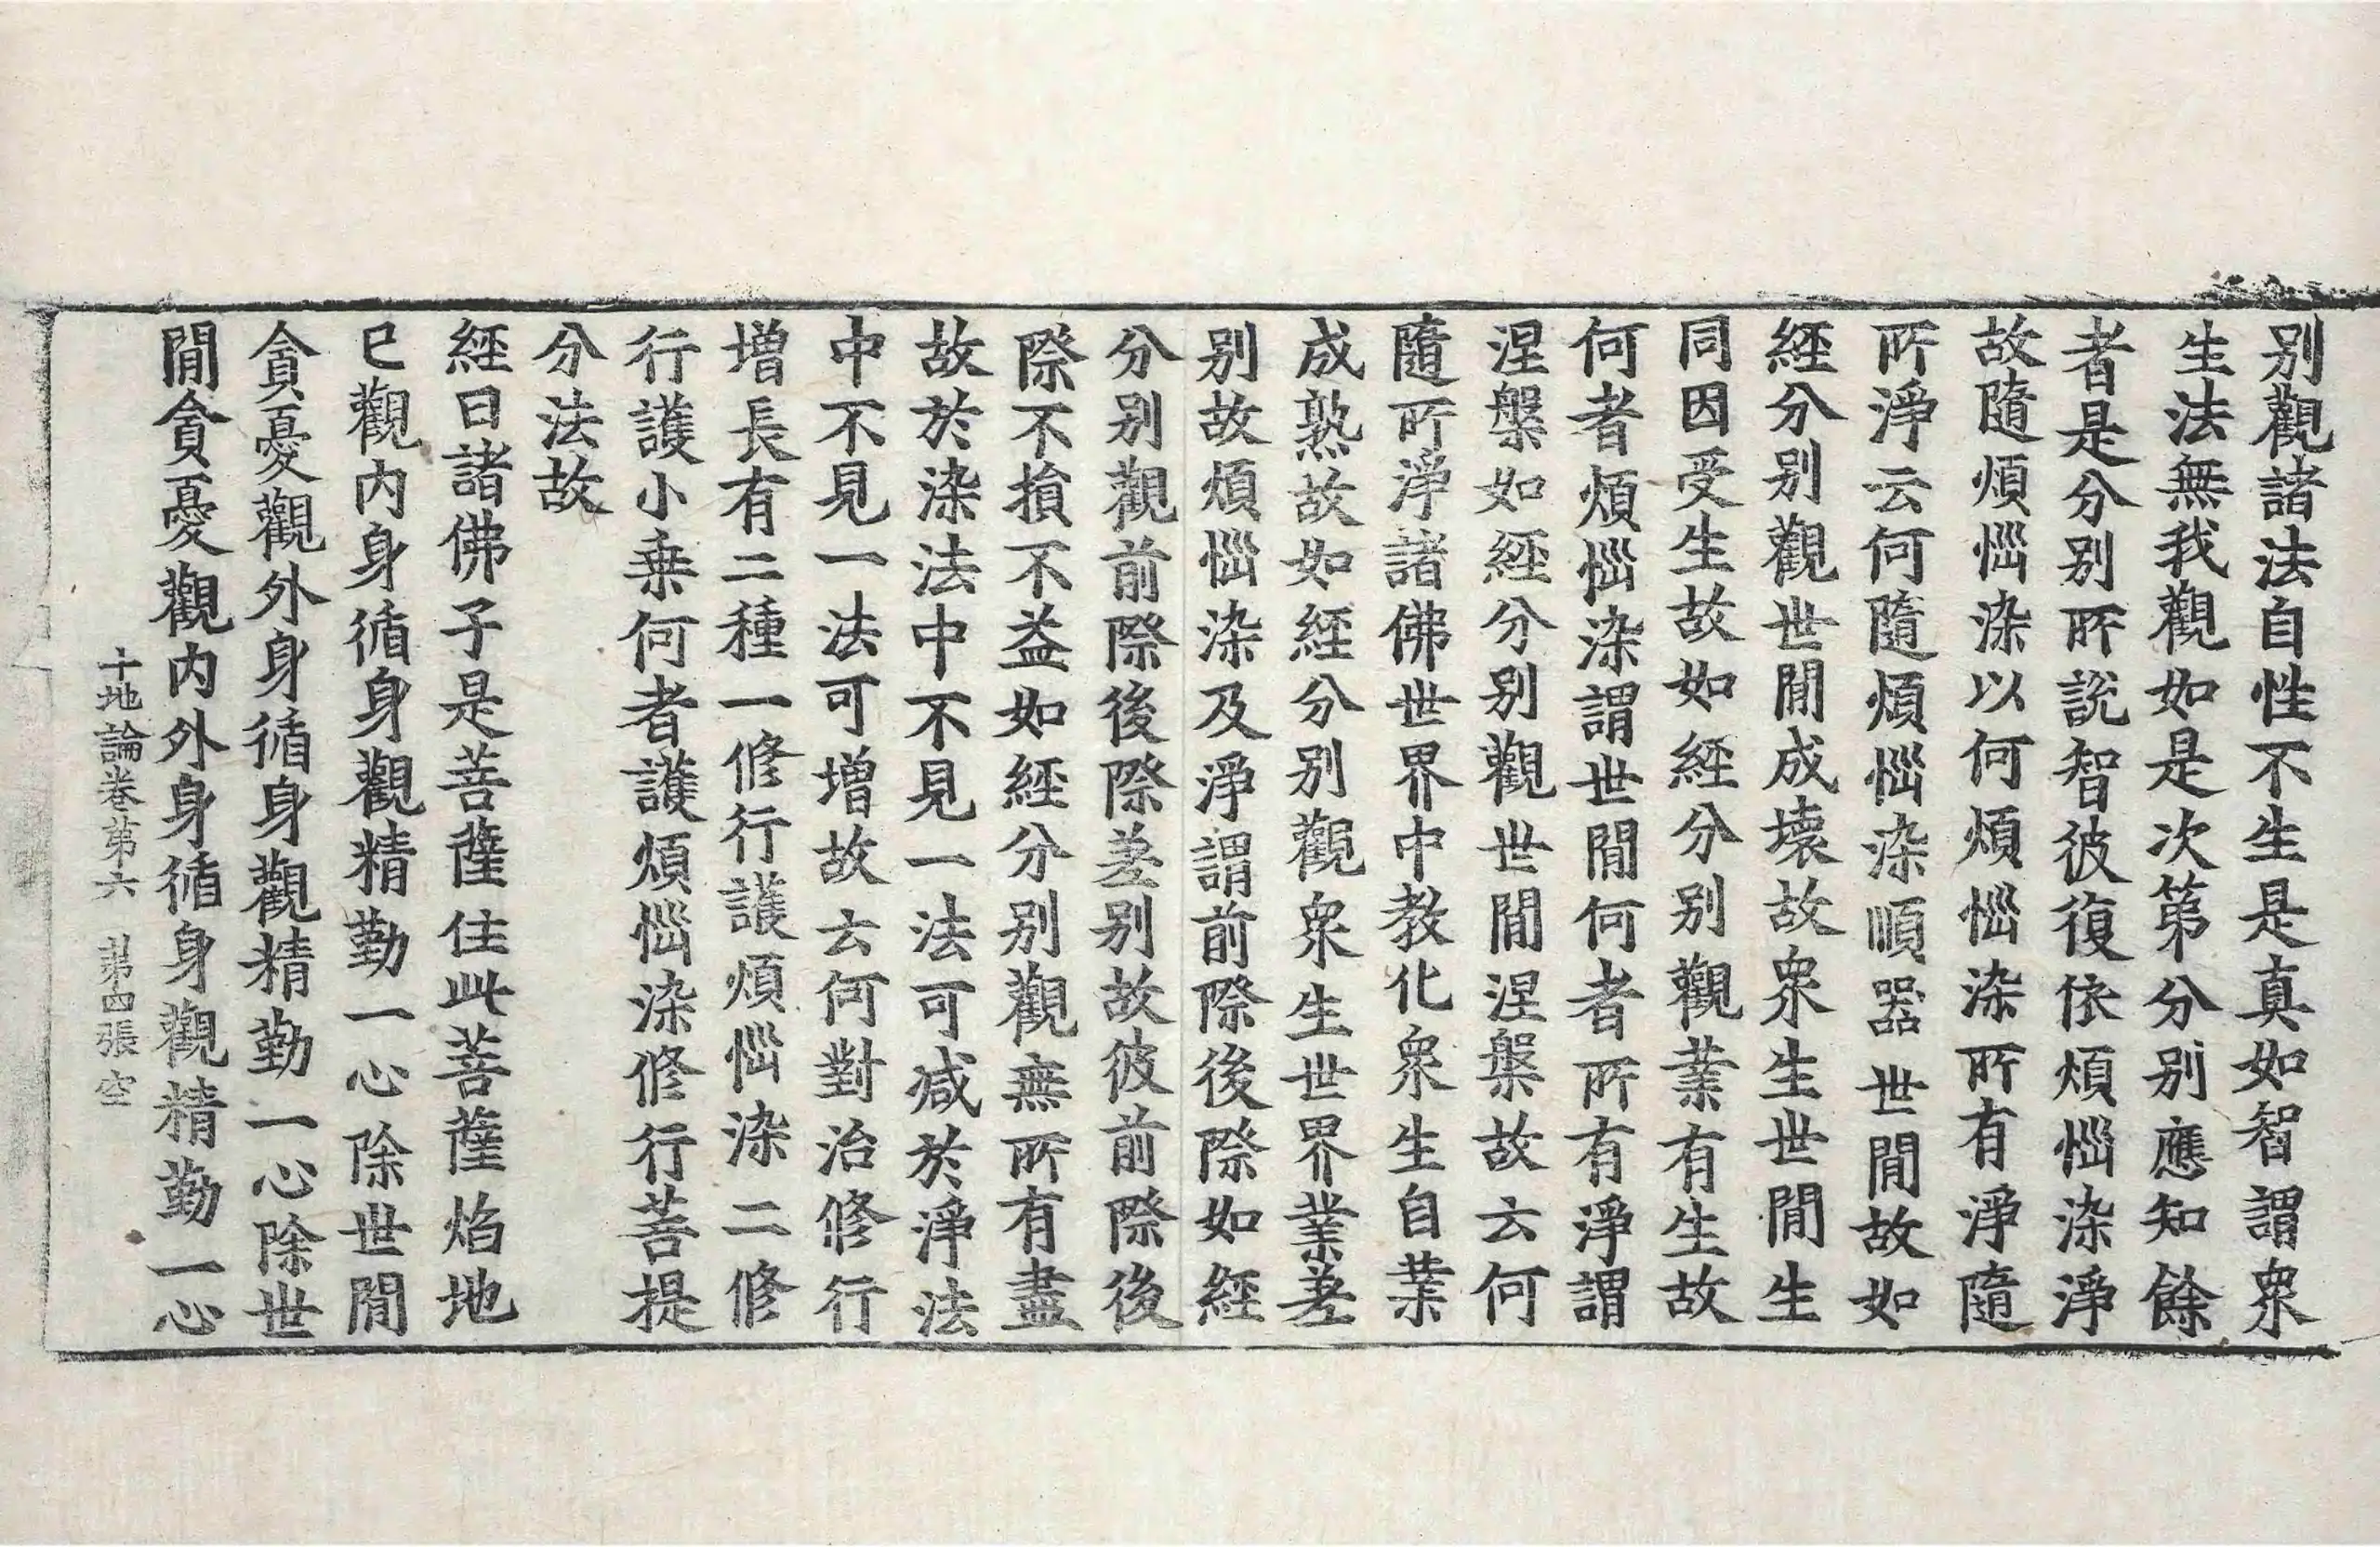 别觀諸法自性不生是真如智謂衆
生法無我觀如是次第分别應知餘
者是分别所説智彼復依煩惱染淨
故隨煩惱染以何煩惱染所有淨隨
所淨云何隨煩惱染順器世閒故如
經分别觀世閒成壞故衆生世閒生
同因受生故如經分别觀業有生故
何者煩惱染謂世閒何者所有淨謂
涅槃如經分别觀世閒涅槃故云何
隨所淨諸佛世界中教化衆生自業
成熟故如經分别觀衆生世界業差
别故煩惱染及淨謂前際後際如經
分别觀前際後際差别故彼前際後
際不損不益如經分别觀無所有盡
故於染法中不見一法可减於淨法
中不見一法可增故云何對治修行
增長有二種一修行護煩惱染二修
行護小乗何者護煩惱染修行菩提
分法故
經曰諸佛子是菩薩住此菩薩焰地
已觀内身循身觀精勤一心除世閒
貪憂觀外身循身觀精勤一心除世
閒貪憂觀内外身循身觀精勤一心
十地論卷第六 第四張 空